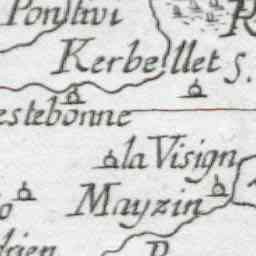 Ponthivi R
Kerbellet S.
estebonne
la Visign
Mayzin
o
drien P